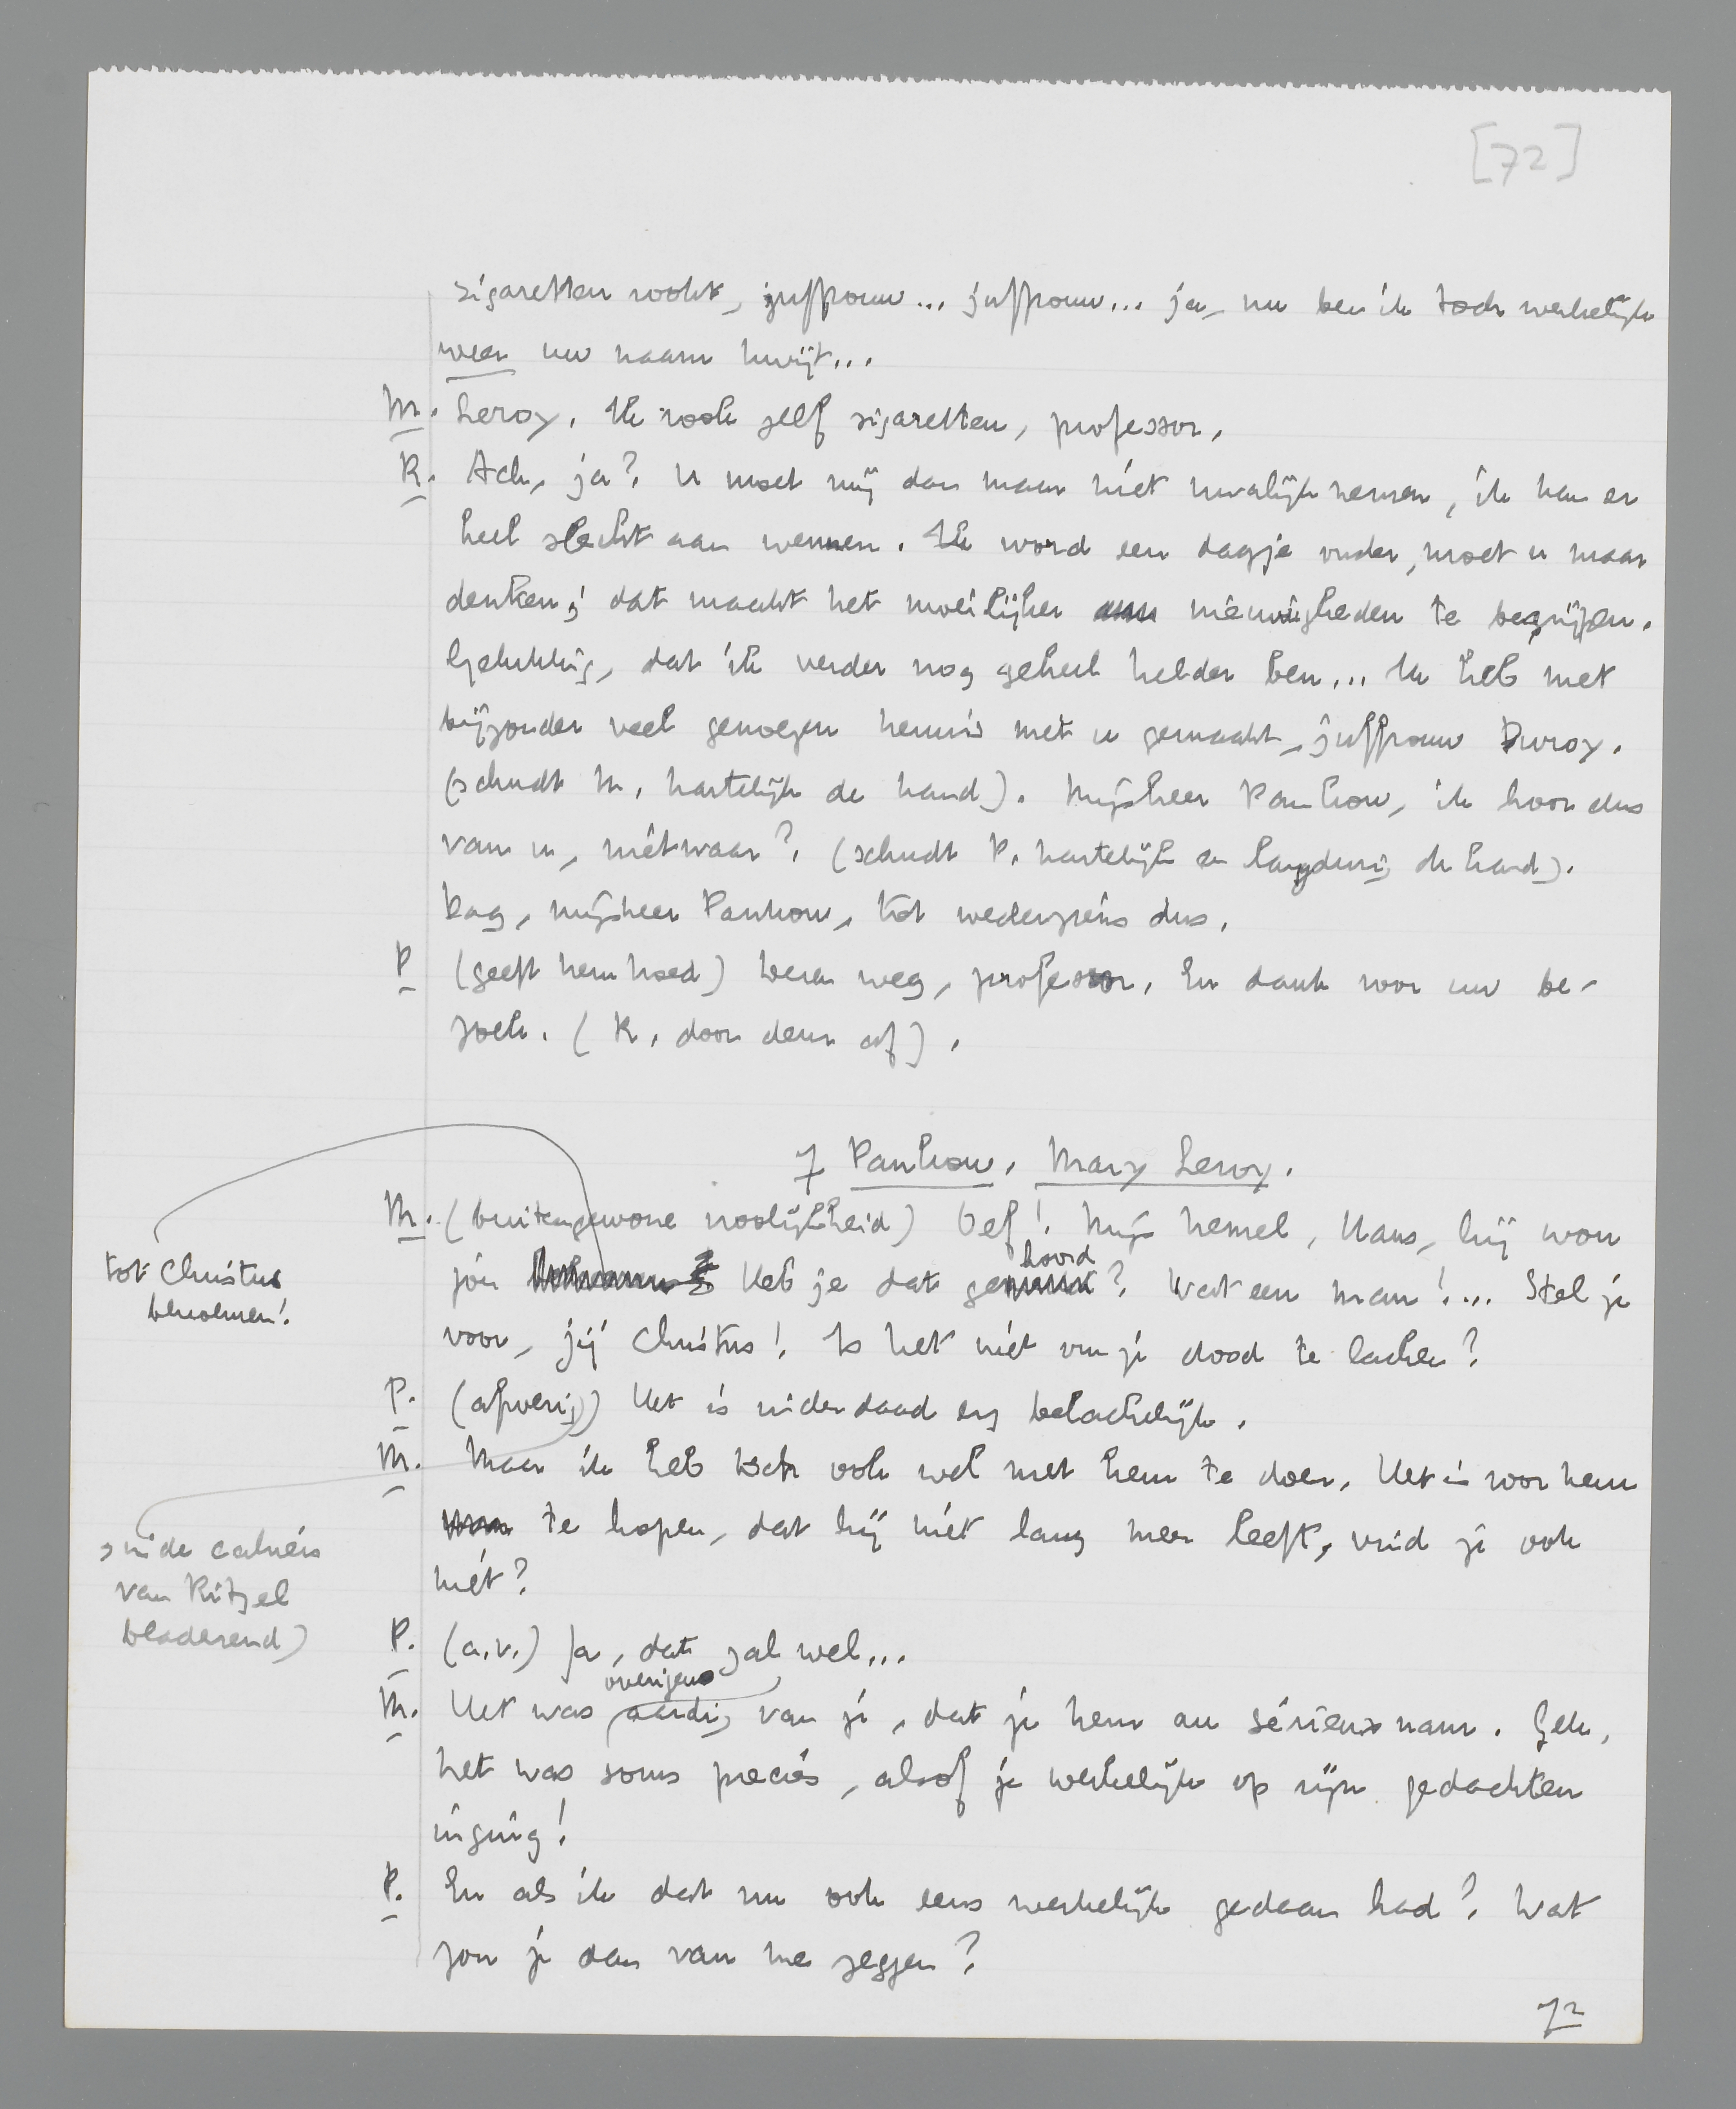 [72]
sigaretten rookt, juffrouw... juffrouw... ja, nu ben ik toch werkelijk
weer uw naam kwijt...
M. Leroy. Ik rook zelf sigaretten, professor.
R. Ach, ja? U moet mij dan maar niet kwalijk nemen, ik kan er
heel slecht aan wennen. Ik word een dagje ouder, moet u maar
denken; dat maakt het moeilijker nieuwigheden te begrijpen.
Gelukkig, dat ik verder nog geheel helder ben... Ik heb met
bijzonder veel genoegen kennis met u gemaakt, juffrouw Duroy.
(schudt M. hartelijk de hand). Mijnheer Panhow, ik hoor dus
van u, nietwaar? (schudt P. hartelijk en langdurig de hand).
Dag, mijnheer Panhow, tot wederziens dus.
P (geeft hem hoed) Deze weg, professor. En dank voor uw be-
zoek. (R. door deur af).
7 Panhow. Mary Leroy.
M. (buitengewone vroolijkheid) Oef! Mijn hemel, Hans, hij wou
jóu Heb je dat gehoord? Wat een man!... Stel je
tot Christus
bekronen!
voor, jij Christus! Is het niet om je dood te lachen?
P. (afwerig) Het is inderdaad erg belachelijk.
M. Maar ik heb toch ook wel met hem te doen. Het is voor hem
te hopen, dat hij niet lang meer leeft, vind je ook
niet?
, in de cahiers
van Ritzel
bladerend)
P. (a.v.) Ja, dat zal wel...
M. Het was overigens aardig van je, dat je hem au sérieux nam. Zeg,
het was soms precies, alsof je werkelijk op zijn gedachten
inging!
P. En als ik dat nu ook eens werkelijk gedaan had? Wat
zou je dan van me zeggen?
72